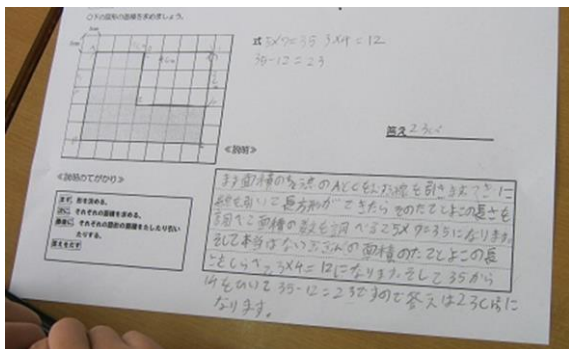 ○下の図形の面積を求めましょう。
1cm
1cm
式 5×7=35 3×4=12
35-12=23
答え 23㎠
≪説明≫
≪説明のてがかり≫
まず、形を決める。
次に、それぞれの面積を求める。
最後に、それぞれの図形の面積をたしたり引い
たりする。
答えを出す
まず面積の各点の
線を引いて長方形ができたらそのたてとよこの長さを
調べて面積の数を調べると5×7=35になります。
そして本当はないぶぶんの面積のたてとよこの長
さをしらべて3×4=12になります。そして35から
12をひいて35-12=23ですので答えは23㎠に
なります。